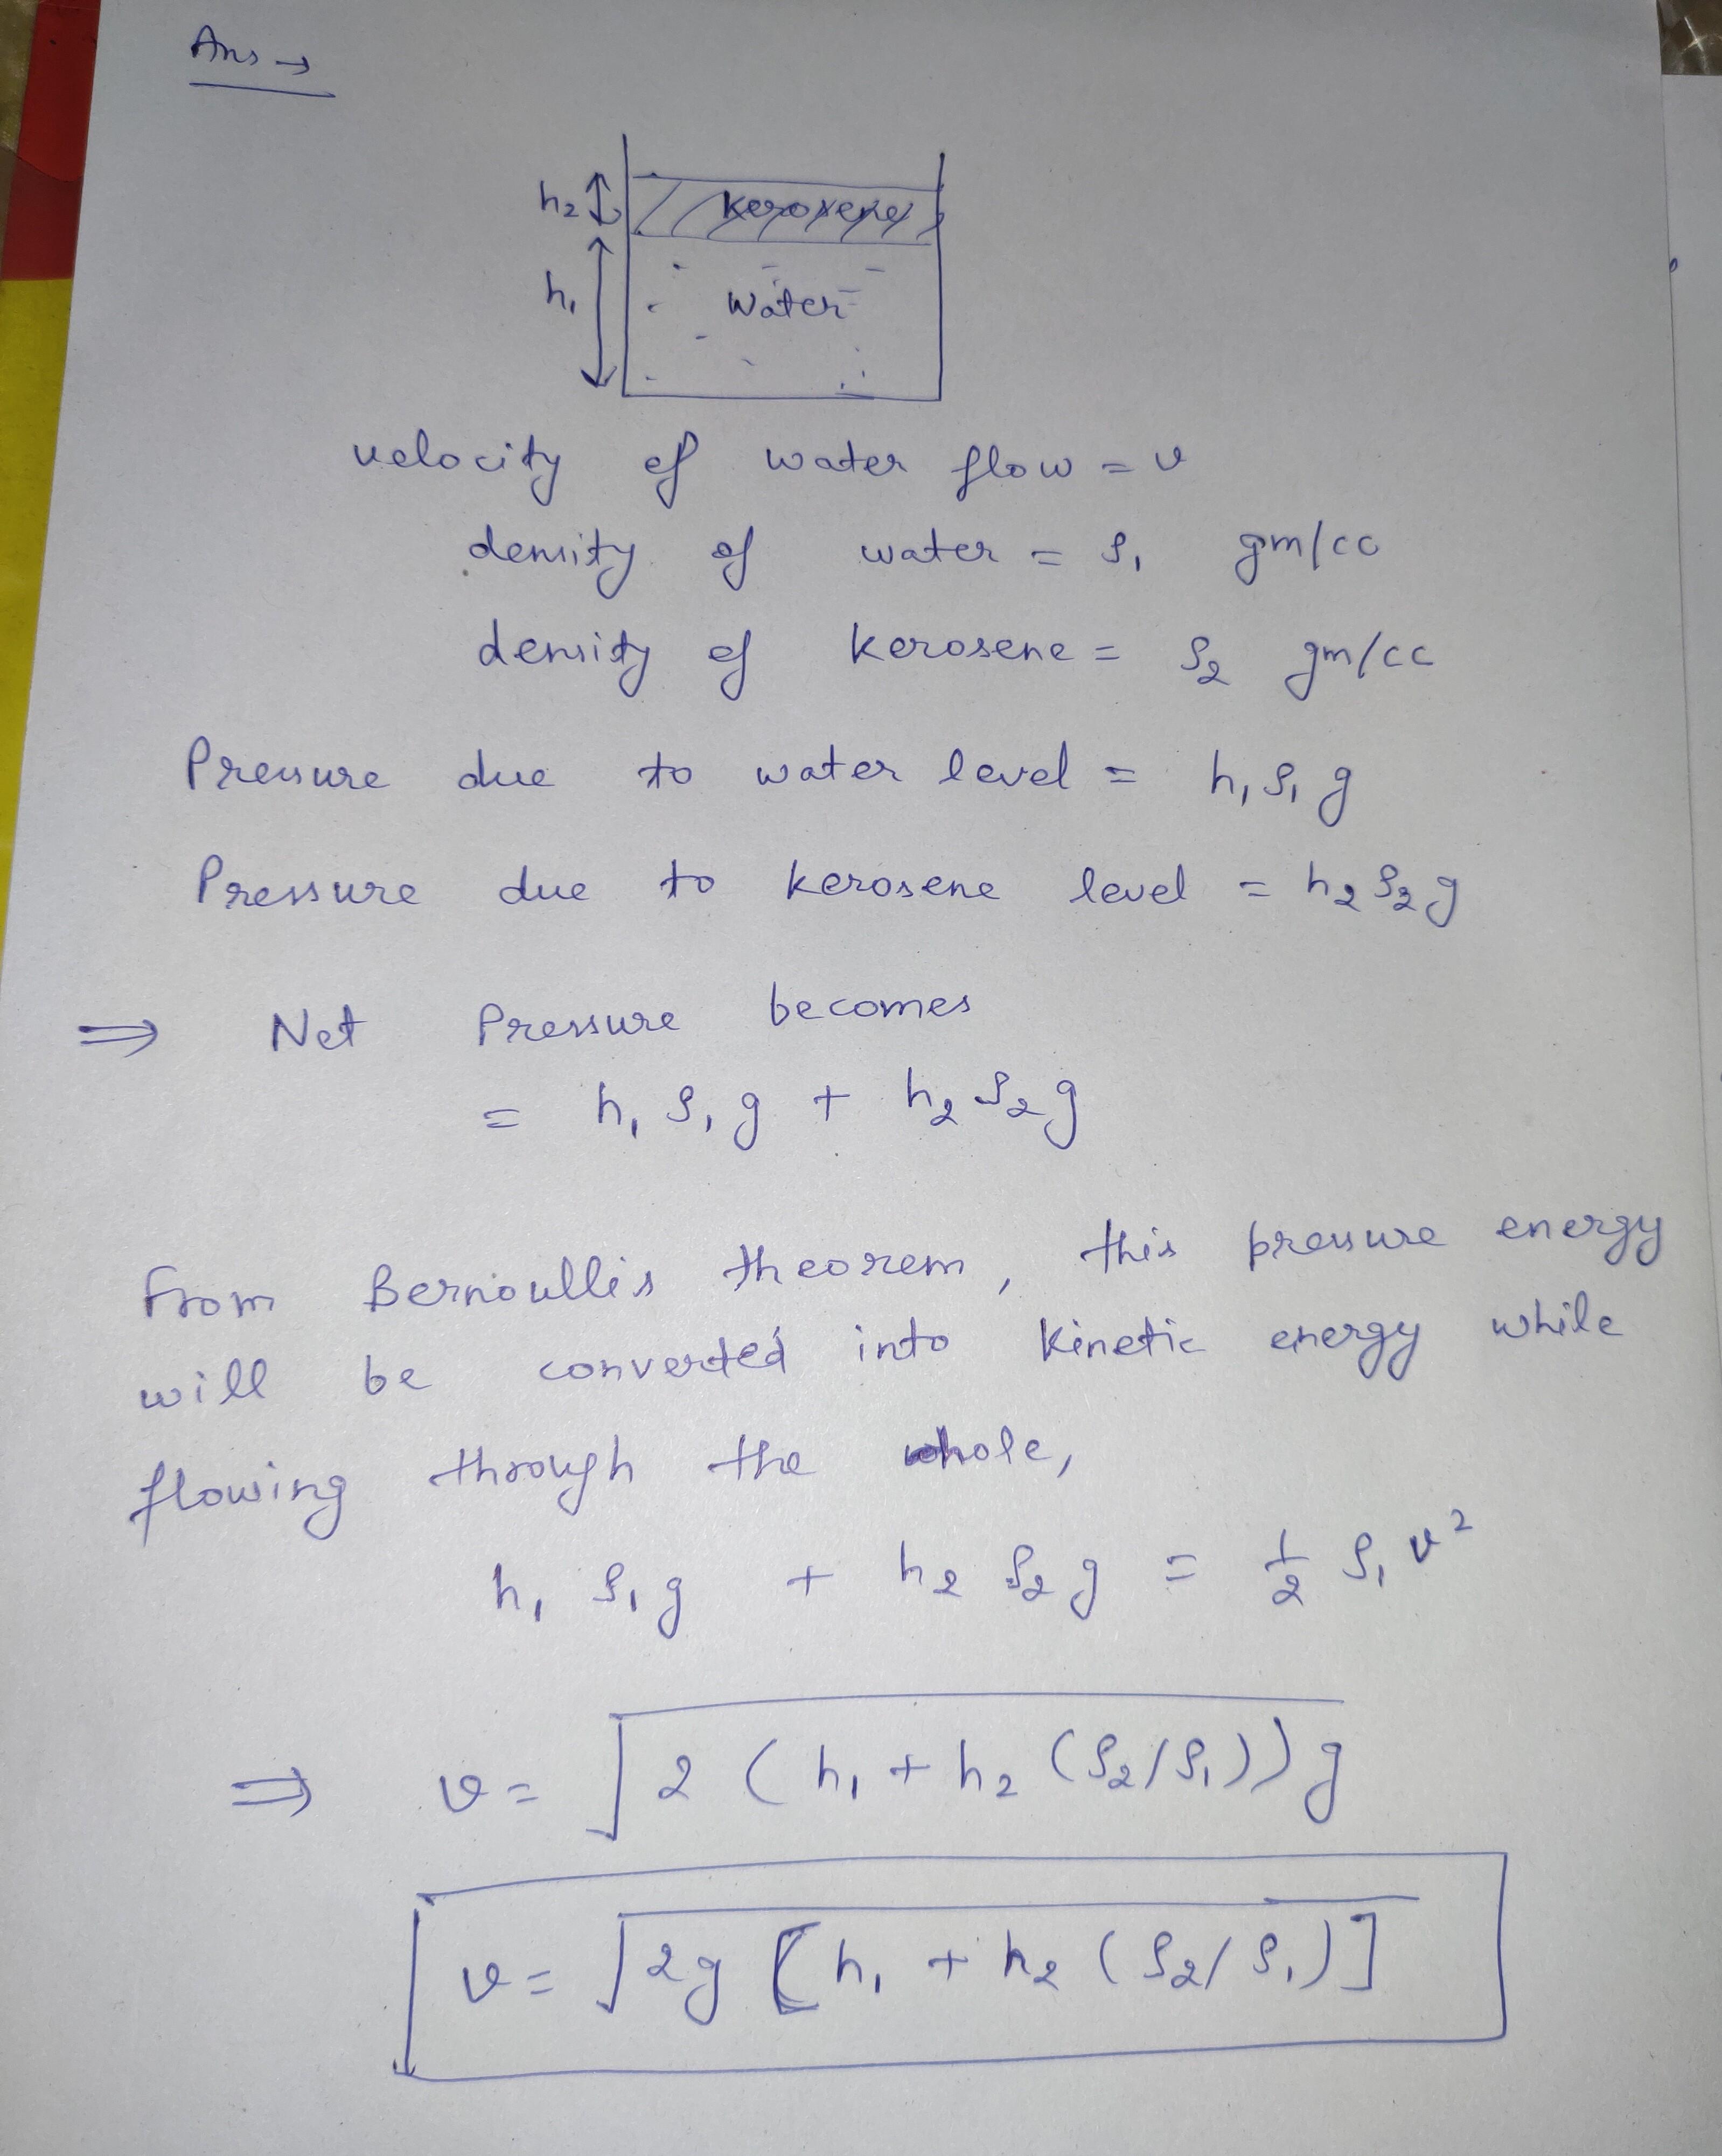 Ans →
h₂
kerosene
h₁
Water
velocity of water flow = v
density of water = ρ₁ gm/cc
density of kerosene = ρ₂ gm/cc
Pressure due to water level = h₁ρ₁g
Pressure due to kerosene level = h₂ρ₂g
⇒ Net Pressure becomes
= h₁ρ₁g + h₂ρ₂g
From Bernoullis theorem, this pressure energy
will be converted into kinetic energy while
flowing through the whole,
h₁ρ₁g + h₂ρ₂g = 1/2 ρ₁v²
⇒ v = √2(h₁ + h₂(ρ₂/ρ₁))g
v = √2g[h₁ + h₂(ρ₂/ρ₁)]